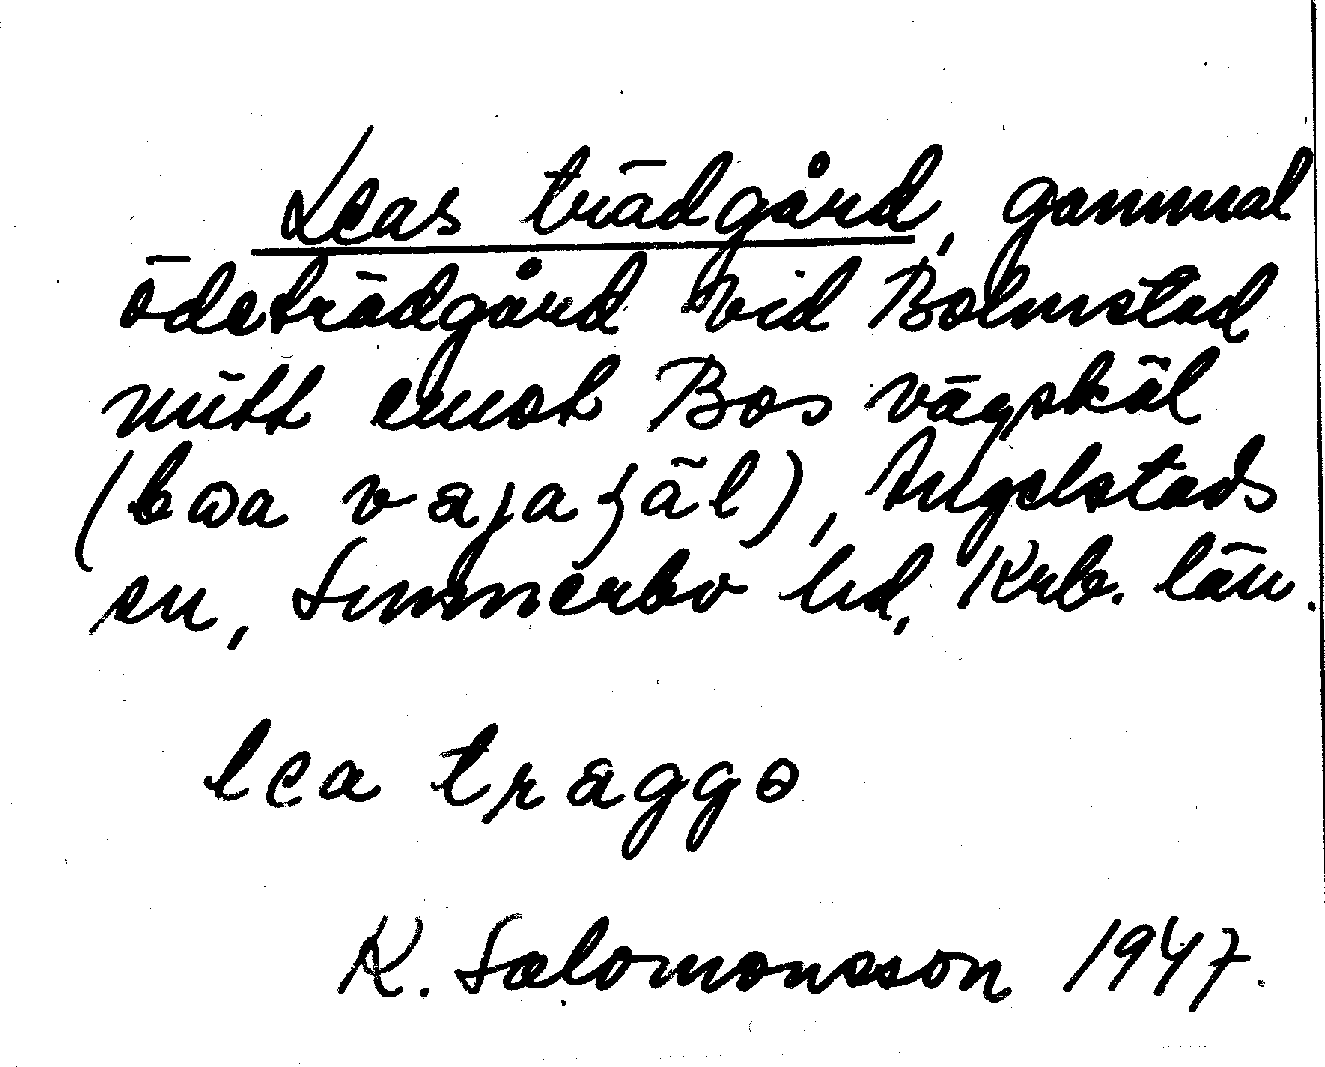 Leas trädgård, gammal
ödeträdgård vid Bolmstad
mitt emot Bos vägskäl
(bωa vaja ʒäl), Angelstads
sn, Sunnerbo hd, Krb. län.
lea traggo
K. Salomonsson 1947.